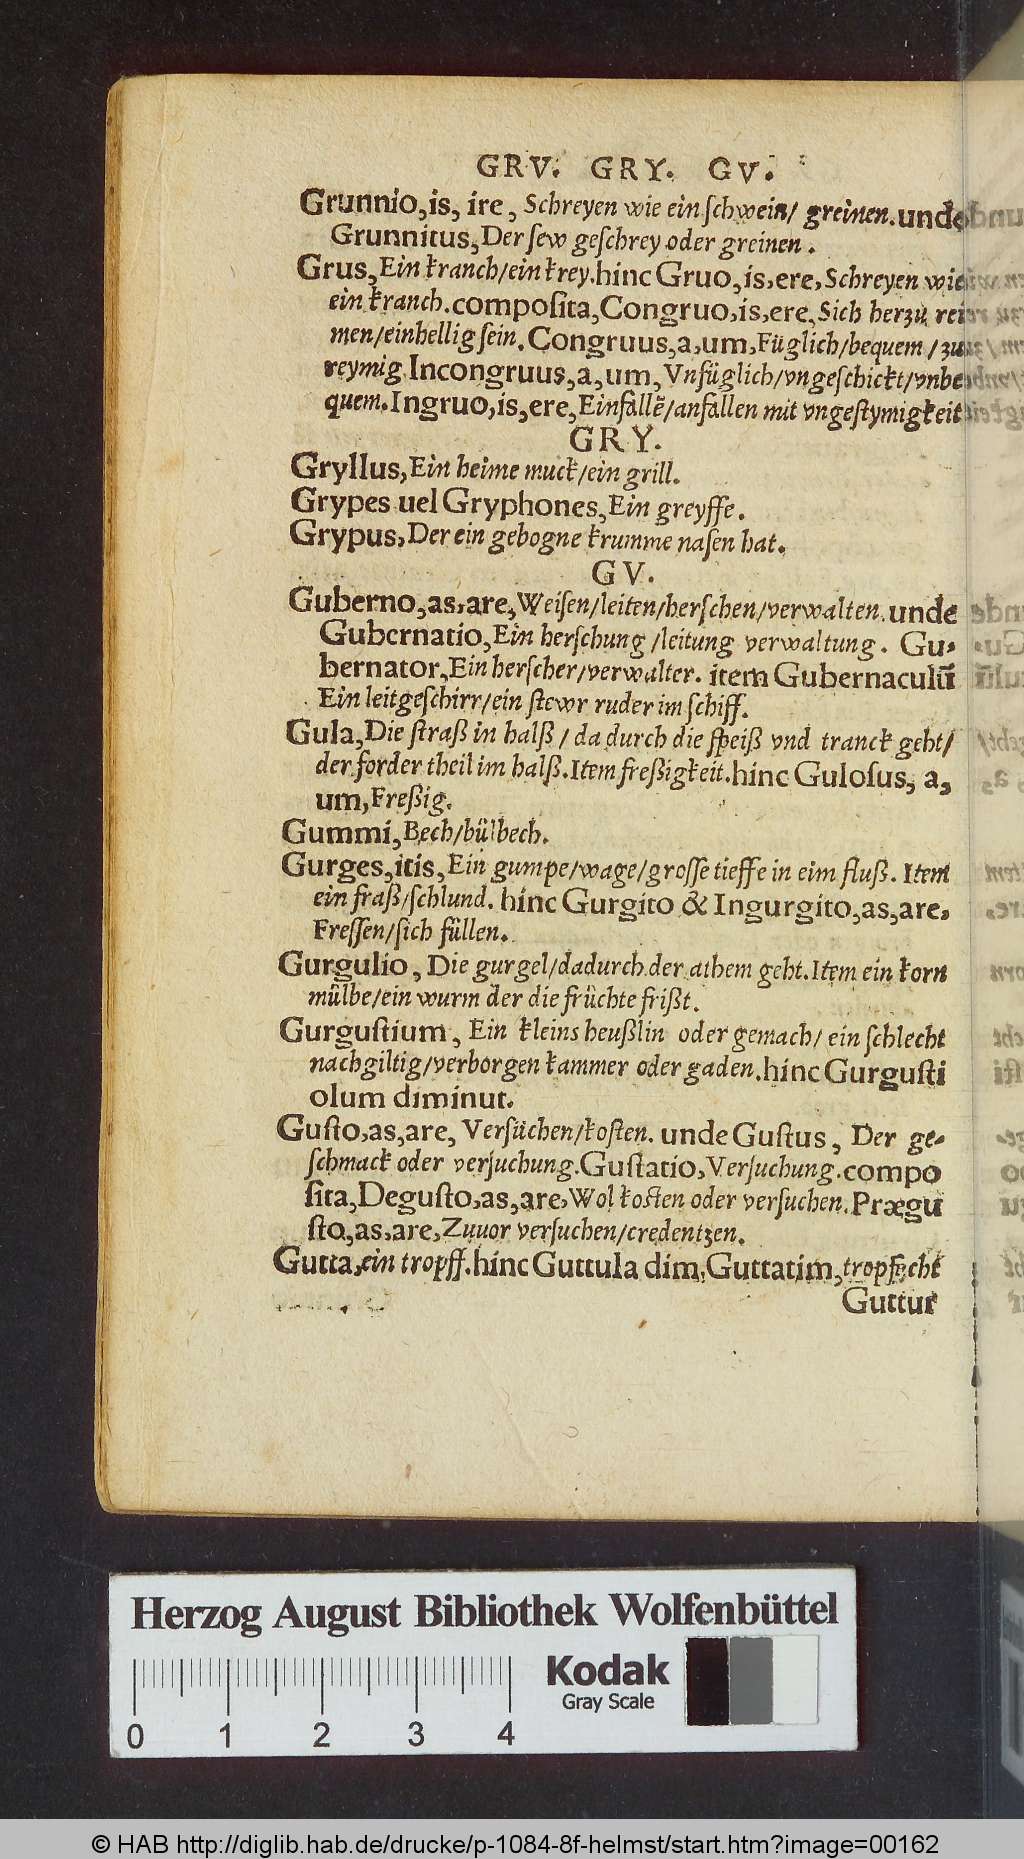 GRV. GRY. GV.
Grunnio, is, ire, Schreyen wie ein ſchwein/ greinen. unde
Grunnitus, Der ſew geſchrey oder greinen.
Grus, Ein kranch/ein krey. hinc Gruo, is, ere, Schreyen wie
ein kranch. compoſita, Congruo, is, ere, Sich herzů rei
men/einhellig ſein. Congruus, a, um, Füglich/bequem/zu
reymig. Incongruus, a, um, Vnfüglich/vngeſchickt/vnbe
quem. Ingruo, is, ere, Einfallẽ/anfallen mit vngeſtymigkeit
GRY.
Gryllus, Ein heime muck/ein grill.
Grypes uel Gryphones, Ein greyffe.
Grypus, Der ein gebogne krumme naſen hat.
GV.
Guberno, as, are, Weiſen/leiten/herſchen/verwalten. unde
Gubernatio, Ein herſchung/leitung verwaltung. Gu-
bernator, Ein herſcher/verwalter. item Gubernaculũ
Ein leitgeſchirr/ein ſtewr ruder im ſchiff.
Gula, Die ſtraß in halß/ da durch die ſpeiß vnd tranck geht/
der forder theil im halß. Item freßigkeit. hinc Guloſus, a,
um, Freßig.
Gummi, Bech/bülbech.
Gurges, itis, Ein gumpe/wage/groſſe tieffe in eim fluß. Item
ein fraß/ſchlund. hinc Gurgito & Ingurgito, as, are,
Freſſen/ſich füllen.
Gurgulio, Die gurgel/dadurch der athem geht. Item ein korn
mülbe/ein wurm der die früchte frißt.
Gurguſtium, Ein kleins heußlin oder gemach/ ein ſchlecht
nachgiltig/verborgen kammer oder gaden. hinc Gurguſti
olum diminut.
Guſto, as, are, Verſüchen/koſten. unde Guſtus, Der ge-
ſchmack oder verſuchung. Guſtatio, Verſuchung. compo
ſita, Deguſto, as, are, Wol koſten oder verſuchen. Prægu
ſto, as, are, Zuuor verſuchen/credentzen.
Gutta, ein tropff. hinc Guttula dim. Guttatim, tropfecht
Guttur
Herzog August Bibliothek Wolfenbüttel
0 1 2 3 4
Kodak
Gray Scale
© HAB http://diglib.hab.de/drucke/p-1084-8f-helmst/start.htm?image=00162